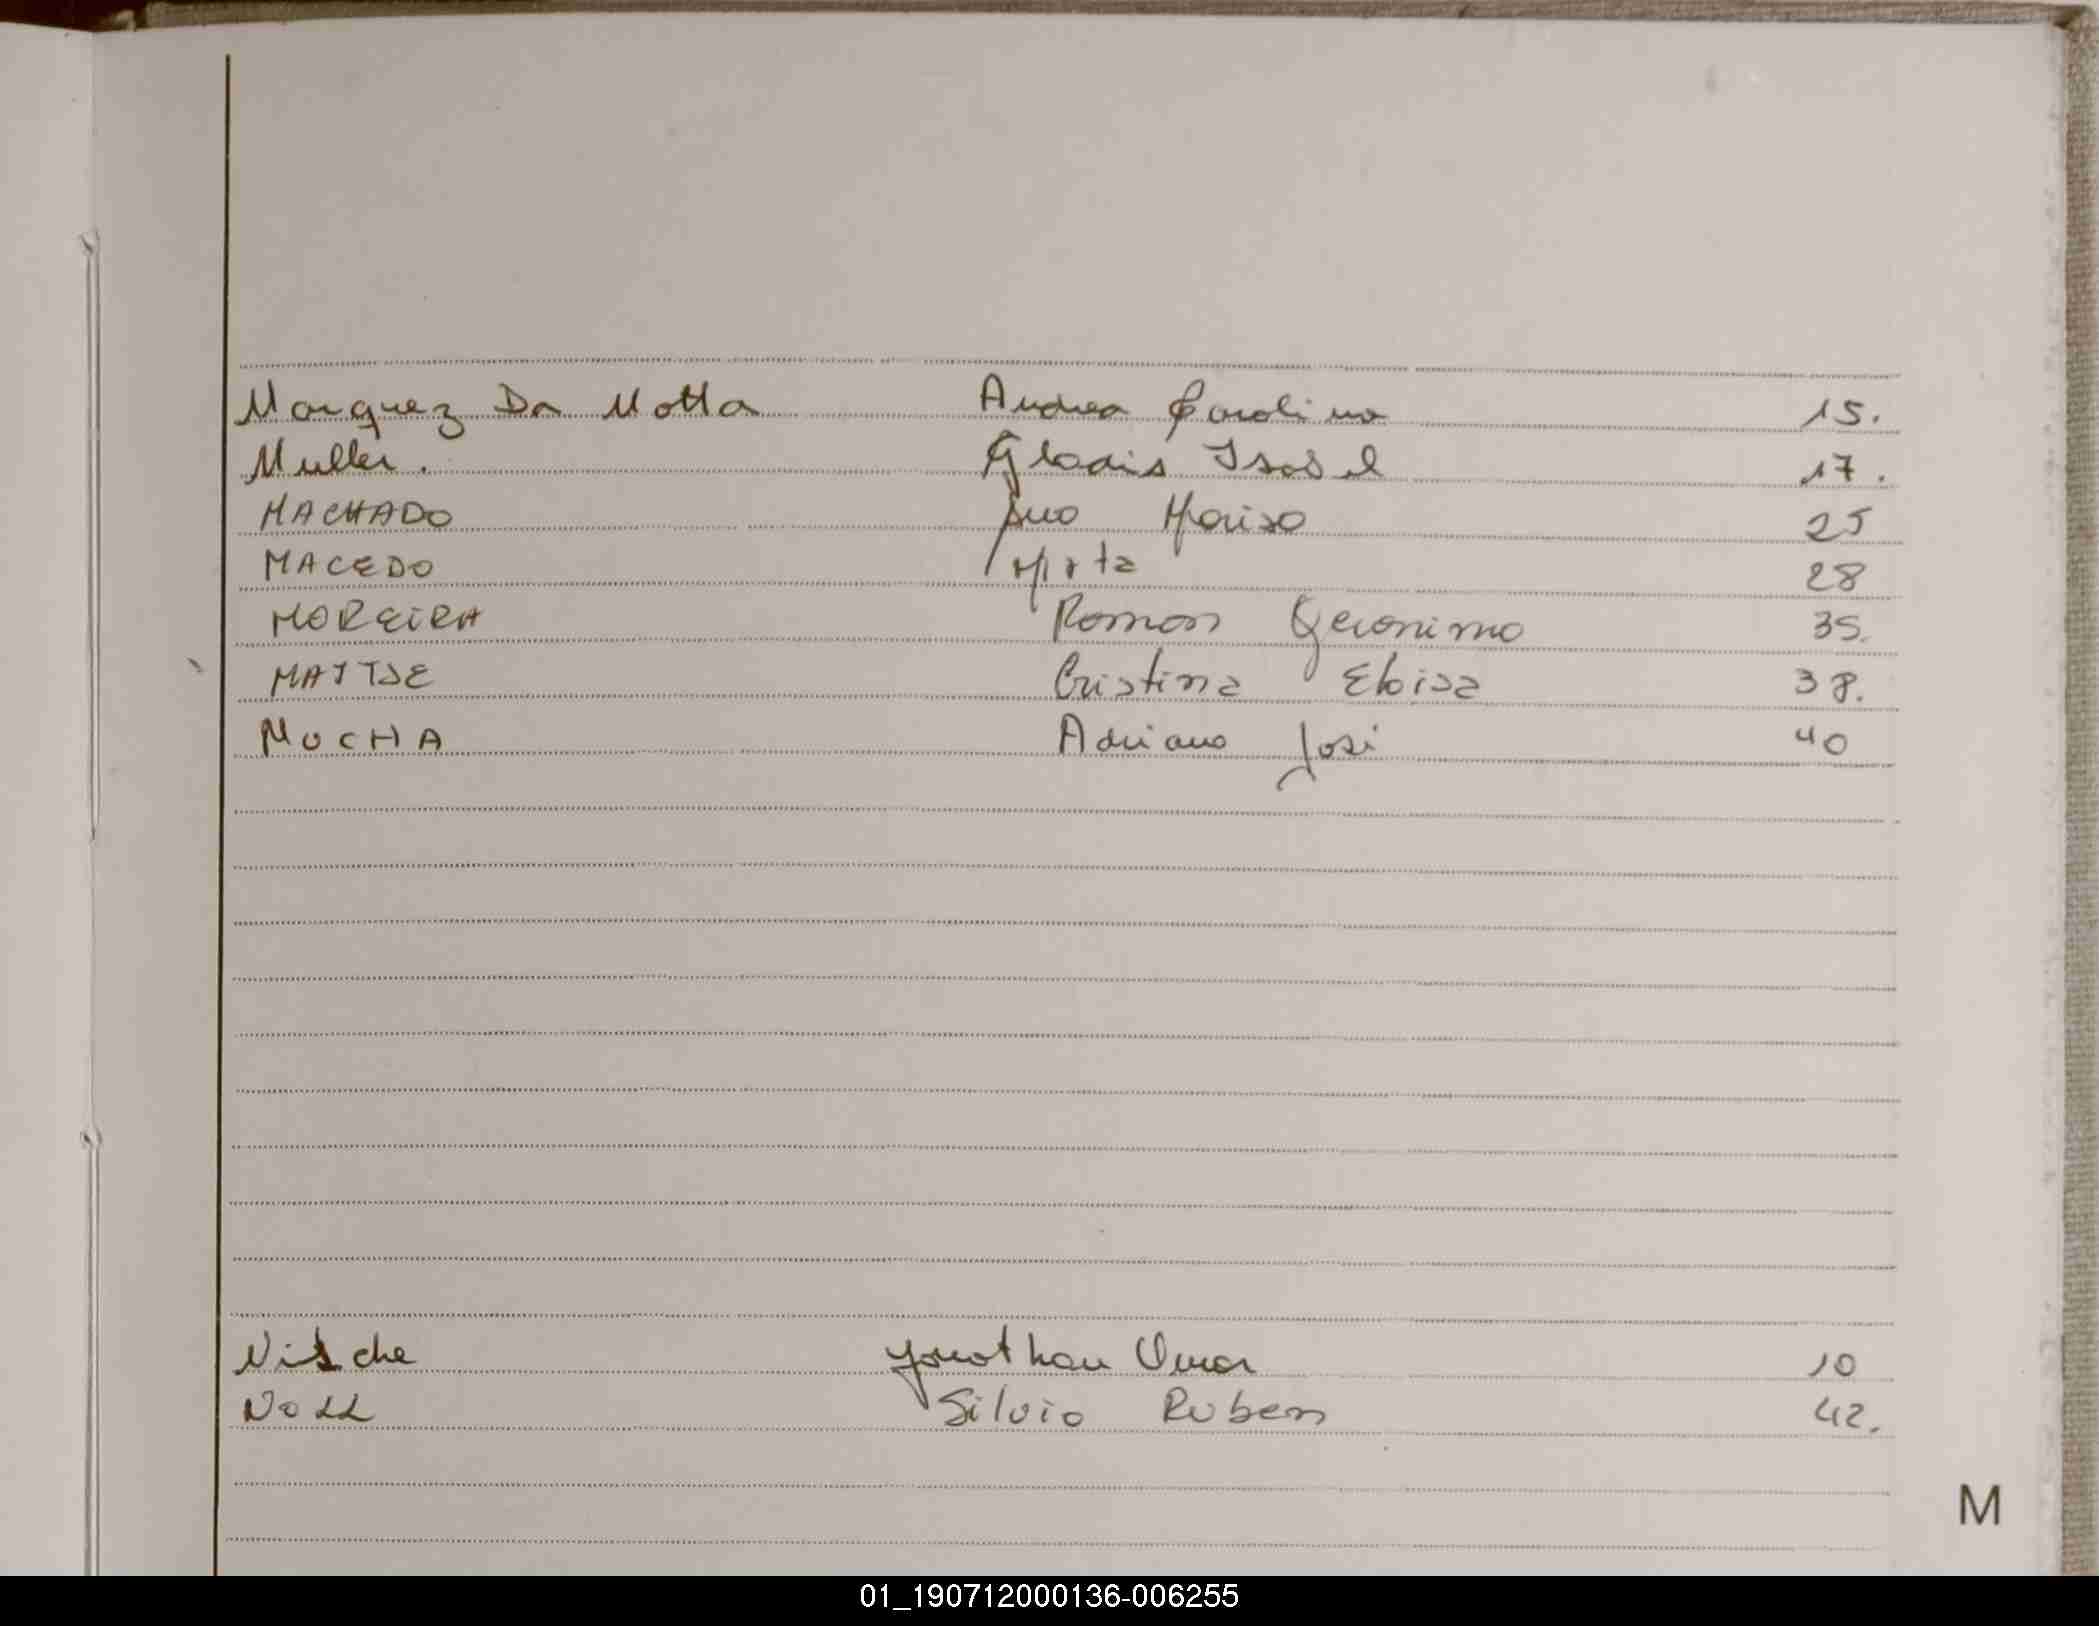 Marquez Da Motta Andrea Carolina 15.
Muller. Gladis Isabel 17.
MACHADO Ana Marisa 25
MACEDO Mirta 28
MOREIRA Ramon Geronimo 35.
MATTJE Cristina Eloisa 38.
MUCHA Adriano Jose 40
Nitsche Jonathan Omar 10
NOLL Silvio Ruben 42.
M
01_190712000136-006255